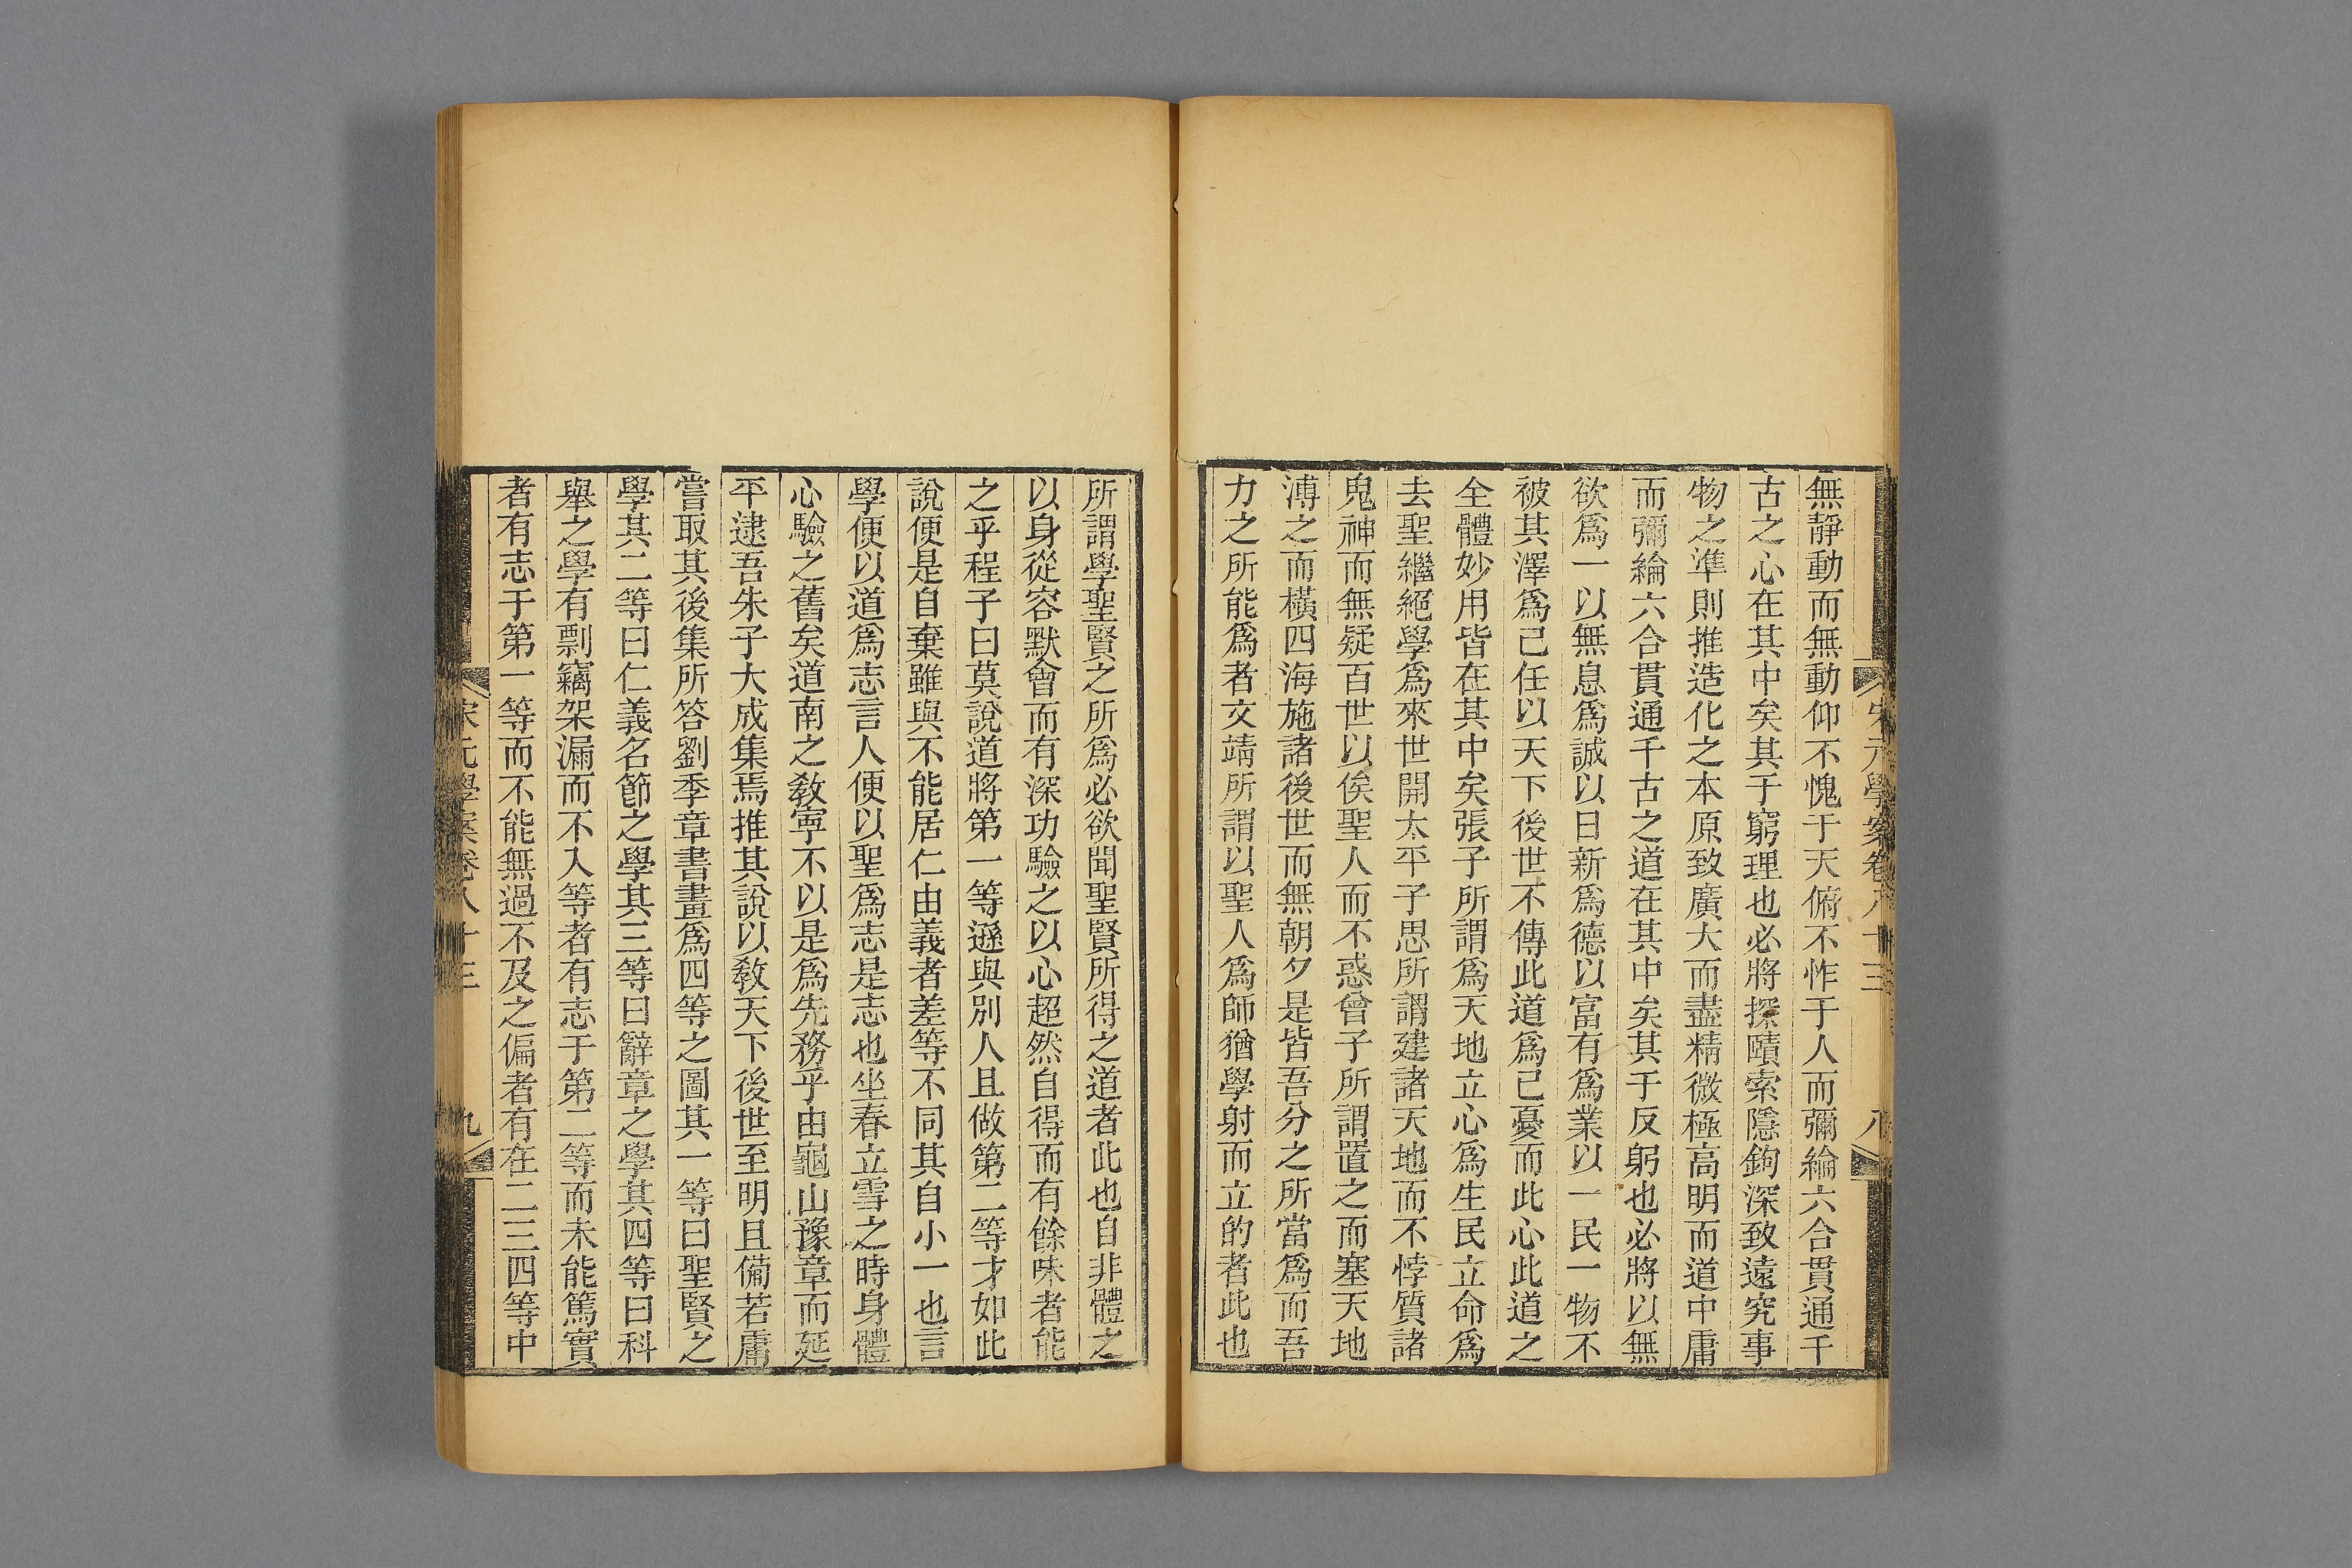 宋元學案卷八十三 八
無靜動而無動仰不愧于天俯不怍于人而彌綸六合貫通千
古之心在其中矣其于窮理也必將探賾索隱鉤深致遠究事
物之準則推造化之本原致廣大而盡精微極高明而道中庸
而彌綸六合貫通千古之道在其中矣其于反躬也必將以無
欲爲一以無息爲誠以日新爲德以富有爲業以一民一物不
被其澤爲己任以天下後世不傳此道爲己憂而此心此道之
全體妙用皆在其中矣張子所謂爲天地立心爲生民立命爲
去聖繼絕學爲來世開太平子思所謂建諸天地而不悖質諸
鬼神而無疑百世以俟聖人而不惑曾子所謂置之而塞天地
溥之而橫四海施諸後世而無朝夕是皆吾分之所當爲而吾
力之所能爲者文靖所謂以聖人爲師猶學射而立的者此也
所謂學聖賢之所爲必欲聞聖賢所得之道者此也自非體之
以身從容默會而有深功驗之以心超然自得而有餘味者能
之乎程子曰莫說道將第一等遜與別人且做第二等才如此
說便是自棄雖與不能居仁由義者差等不同其自小一也言
學便以道爲志言人便以聖爲志是志也坐春立雪之時身體
心驗之舊矣道南之敎寧不以是爲先務乎由龜山豫章而延
平逮吾朱子大成集焉推其說以敎天下後世至明且備若庸
嘗取其後集所答劉季章書畫爲四等之圖其一等曰聖賢之
學其二等曰仁義名節之學其三等曰辭章之學其四等曰科
舉之學有剽竊架漏而不入等者有志于第二等而未能篤實
者有志于第一等而不能無過不及之偏者有在二三四等中
宋元學案卷八十三 九